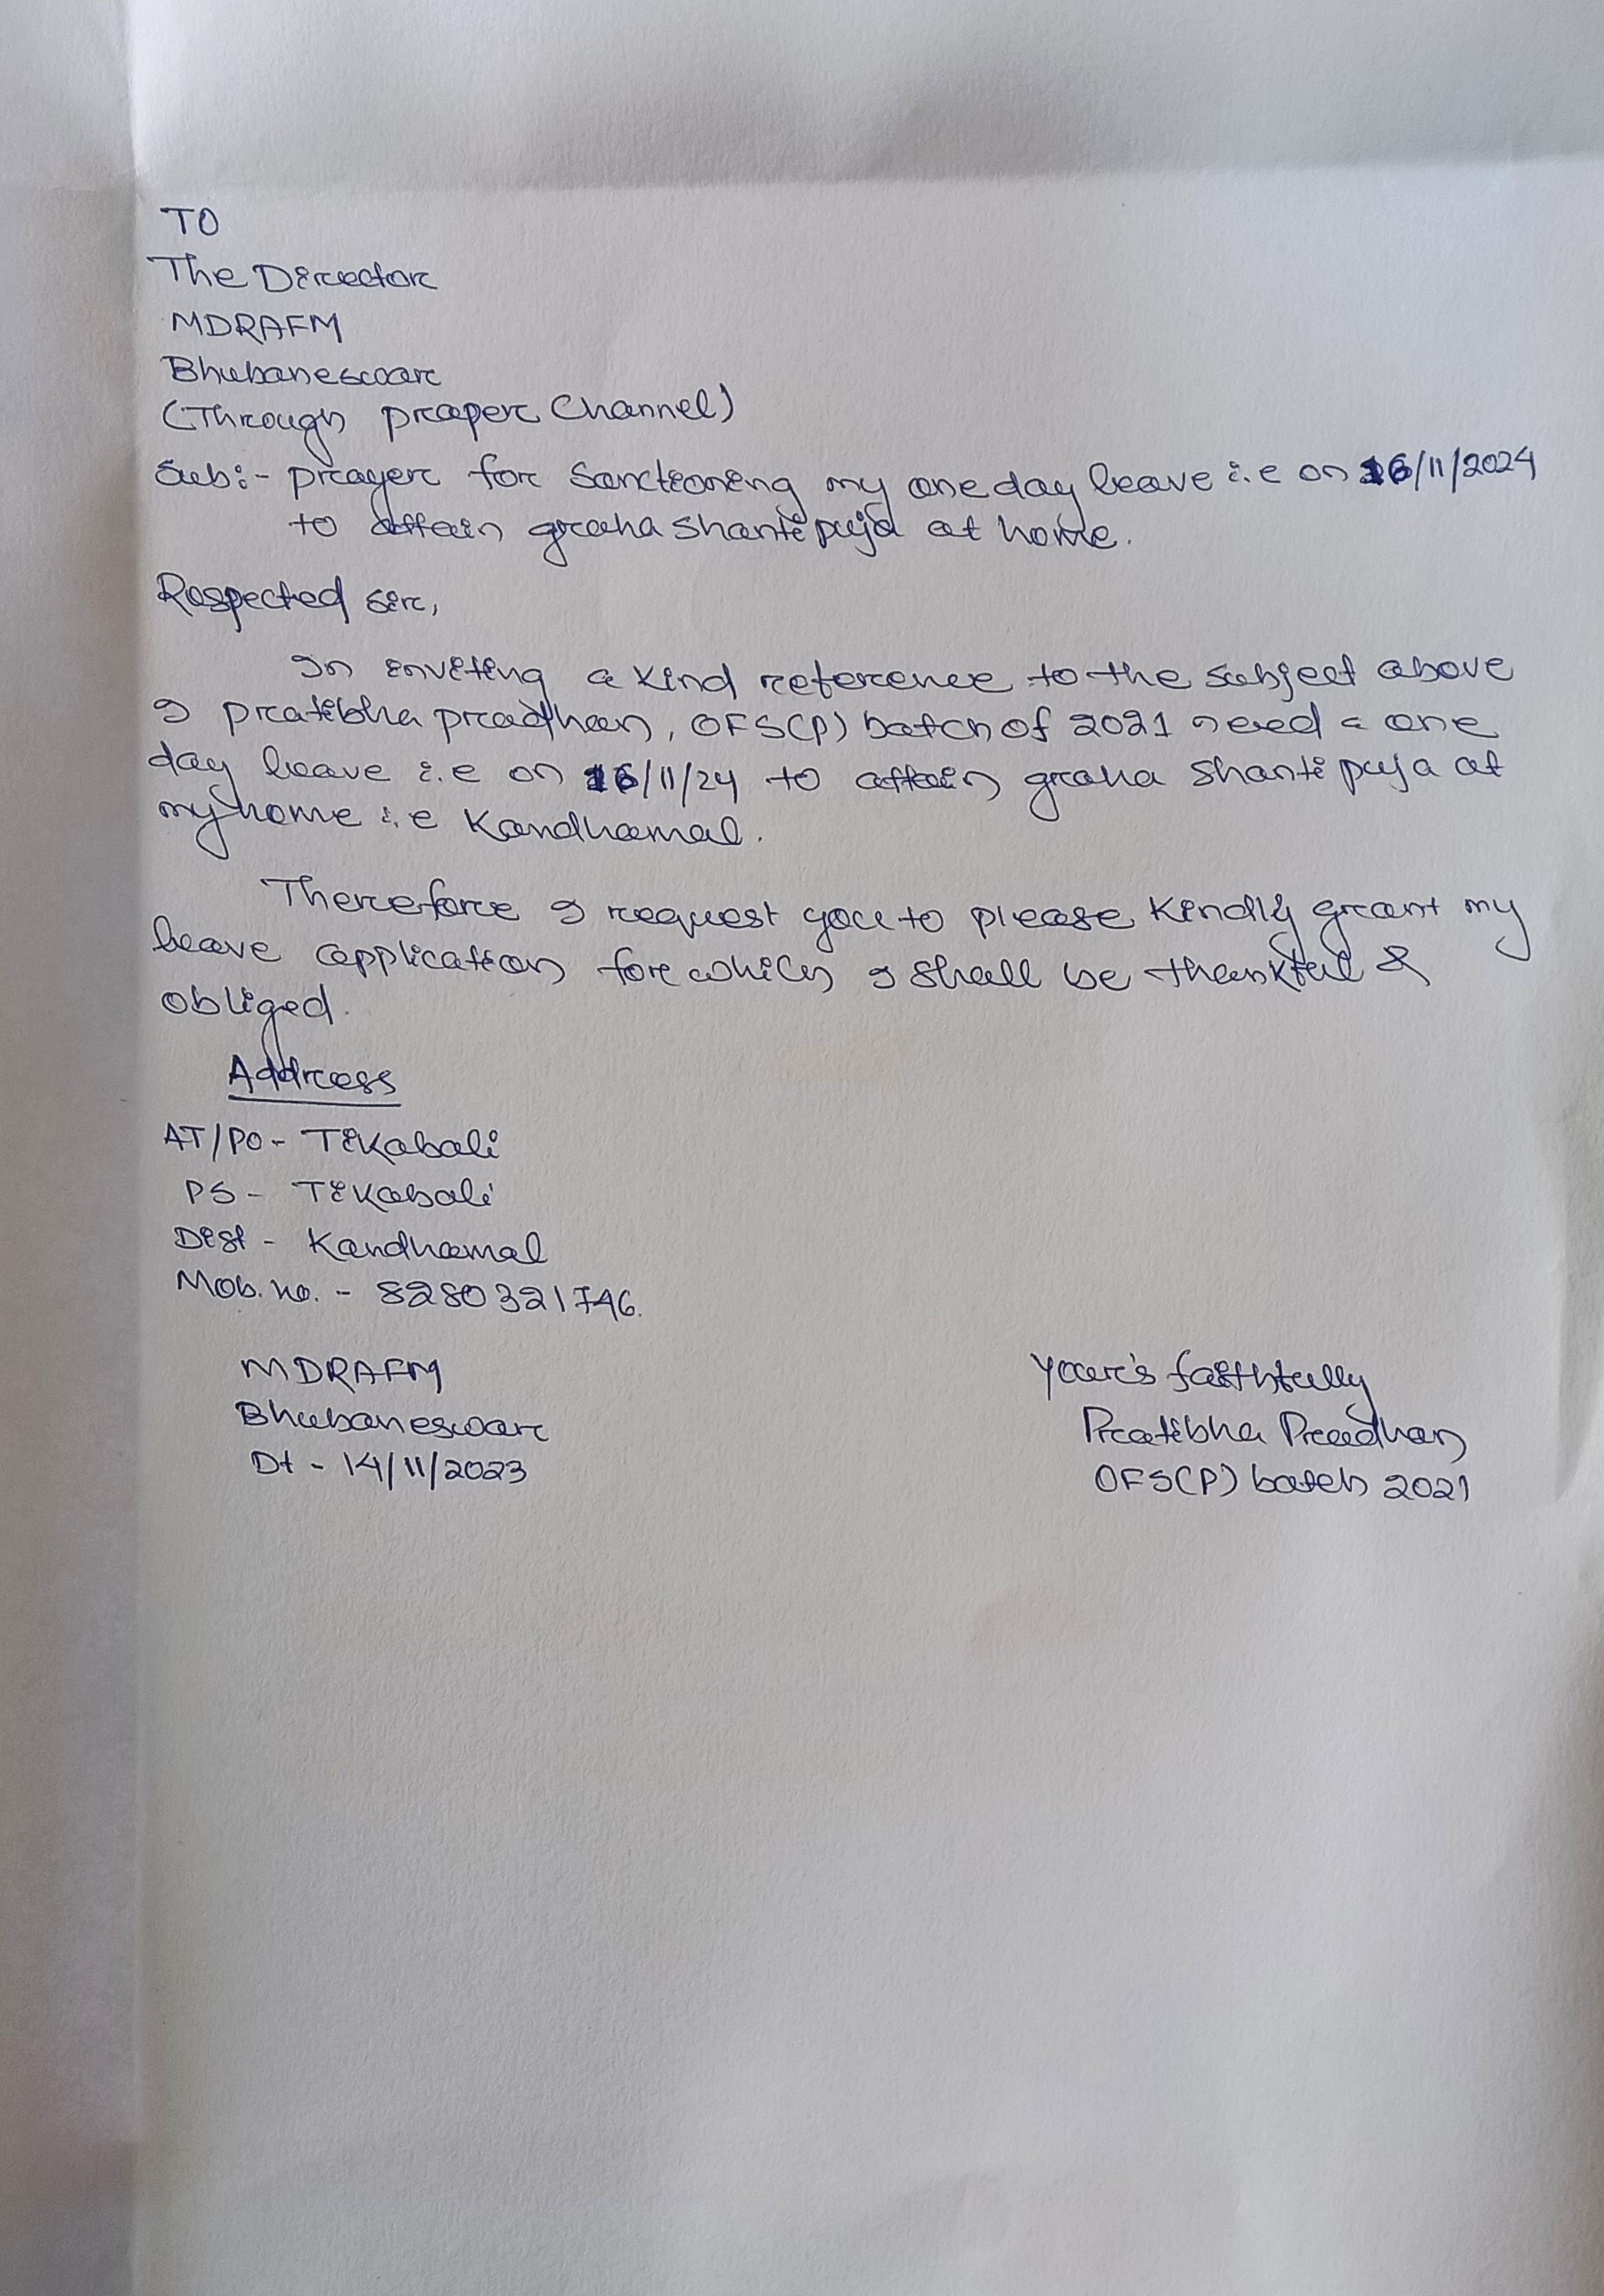 TO
The Director
MDRAFM
Bhubaneswar
(Through proper Channel)
Sub:- prayer for Sanctioning my one day leave i.e on 16/11/2024
to attain graha shanti puja at home.
Respected sir,
In inviting a kind reference to the subject above
I pratibha pradhan, OFS(P) batch of 2021 need a one
day leave i.e on 16/11/24 to attain graha shanti puja at
my home i.e Kandhamal.
Therefore I request you to please kindly grant my
leave application for which I shall be thankful &
obliged.
Address
AT/PO - Tikabali
PS - Tikabali
Dist - Kandhamal
Mob. no. - 8280321746.
MDRAFM
Bhubaneswar
Dt - 14/11/2023
Your's faithfully
Pratibha Pradhan
OFS(P) batch 2021